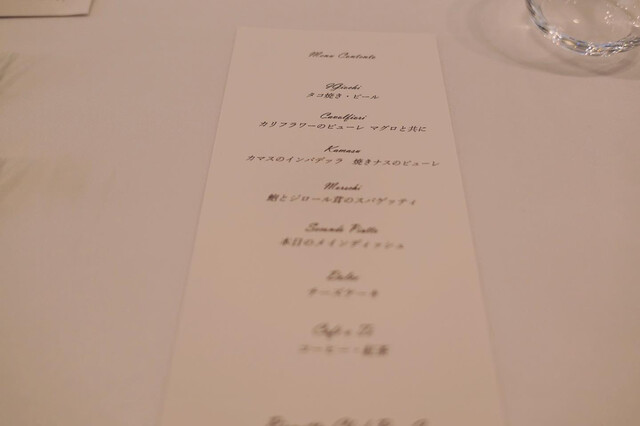 Menu Contents
タコ焼き・ビール
Cavolfiori
カリフラワーのピューレ マグロと共に
Kamasu
カマスのインパデッラ 焼きナスのピューレ
鮑とジロール茸のスパゲッティ
Secondo Piatto
本日のメインディッシュ
Dolce
チーズケーキ
Caffè o Tè
コーヒー・紅茶